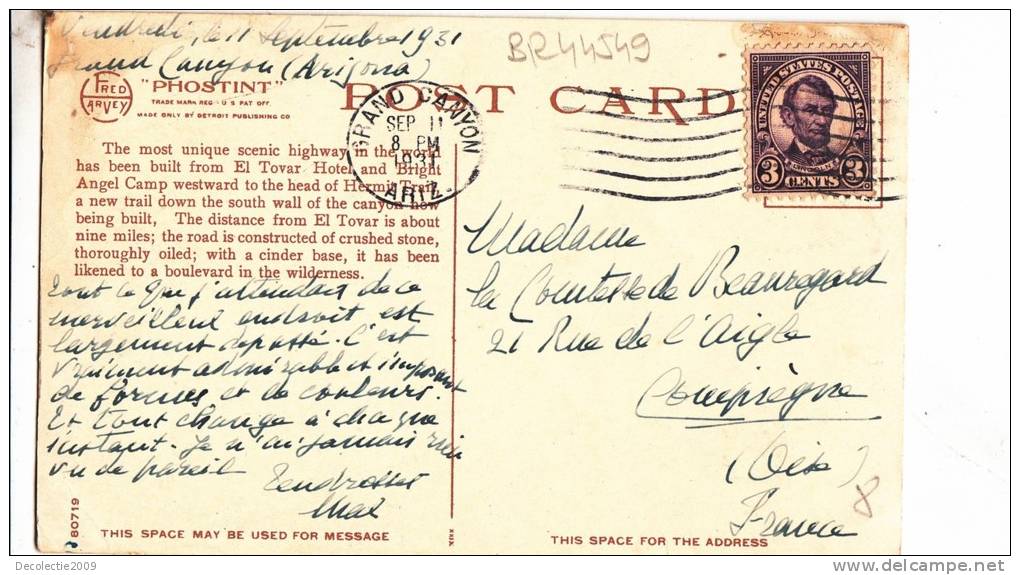 Vendredi, le 11 Septembre 1931
Grand Canyon (Arizona)
BR44549
FRED
HARVEY
"PHOSTINT"
TRADE MARK REG. U S PAT OFF.
MADE ONLY BY DETROIT PUBLISHING CO
POST CARD
GRAND CANYON
SEP 11
8 PM
1931
ARIZ.
UNITED STATES POSTAGE
LINCOLN
3 CENTS 3
The most unique scenic highway in the world
has been built from El Tovar Hotel and Bright
Angel Camp westward to the head of Hermit Trail,
a new trail down the south wall of the canyon now
being built, The distance from El Tovar is about
nine miles; the road is constructed of crushed stone,
thoroughly oiled; with a cinder base, it has been
likened to a boulevard in the wilderness.
tout ce que j'attendais de ce
merveilleux endroit est
largement dépassé. C'est
vraiment admirable et imposant
de formes et de couleurs.
Et tout change à chaque
instant. Je n'ai jamais rien
vu de pareil
Tendresses
Max
Madame
la Comtesse de Beauregard
21 Rue de l'Aigle
Compiègne
(Oise)
France
8
80719
THIS SPACE MAY BE USED FOR MESSAGE
THIS SPACE FOR THE ADDRESS
Decolectie2009
delcampe.net